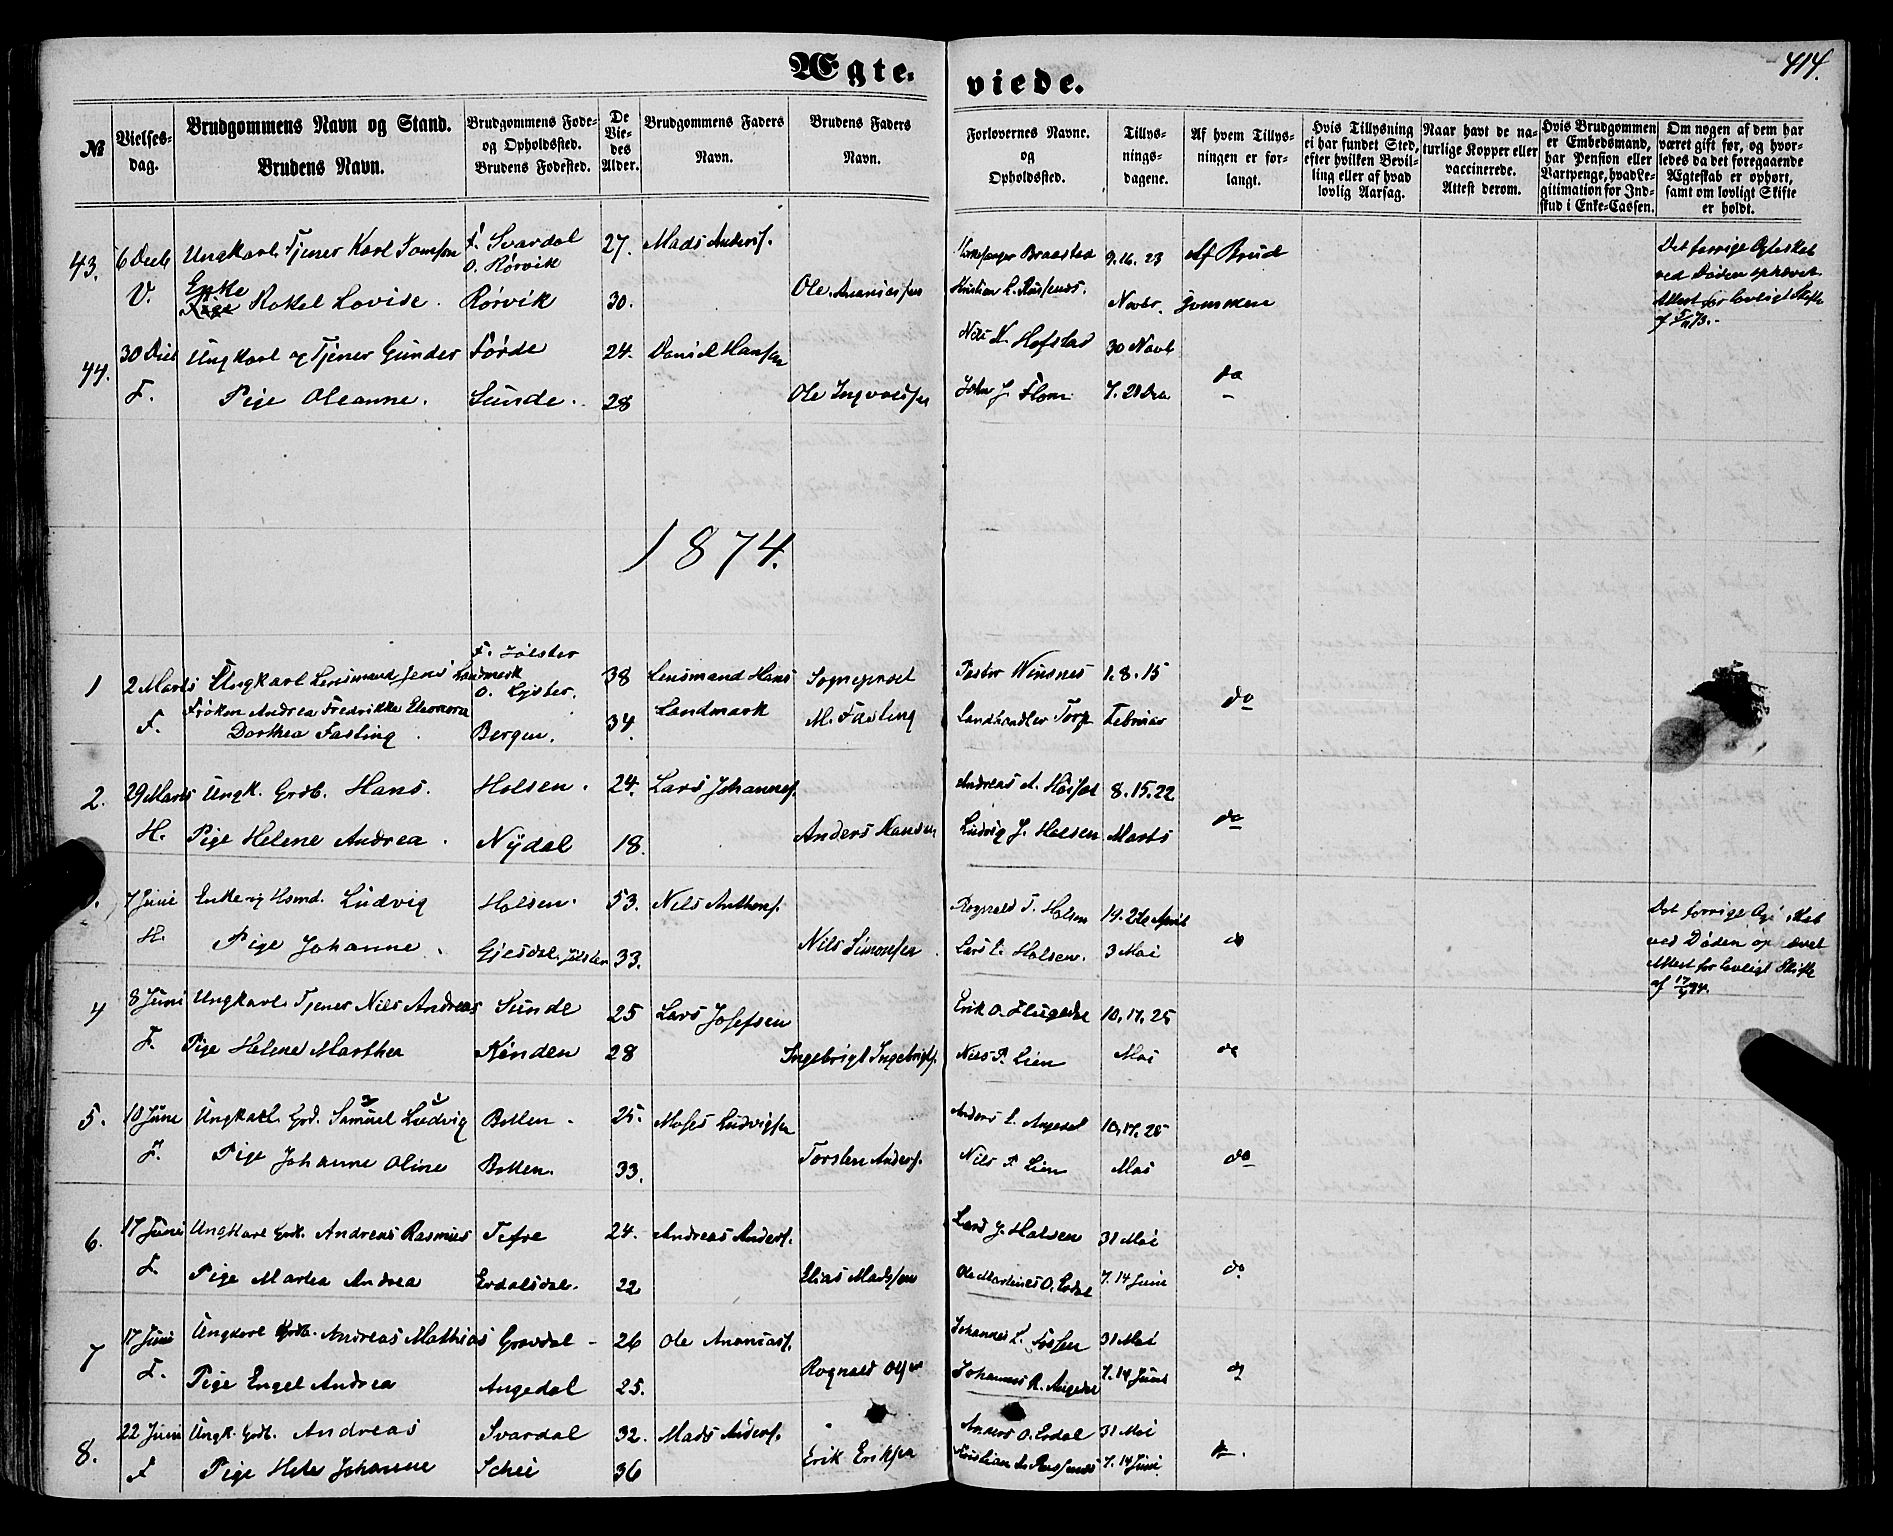 Ægte.
viede.
414.
№
Vielses-
dag.
Brudgommens Navn og Stand.
Brudens Navn.
Brudgommens Føde-
og Opholdssted.
Brudens Fødested.
De
Vie-
des
Alder.
Brudgommens Faders
Navn.
Brudens Faders
Navn.
Forlovernes Navne.
og
Opholdssted.
Tillys-
nings-
dagene.
Af hvem Tillys-
ningen er for-
langt.
Hvis Tillysning
ei har fundet Sted,
efter hvilken Bevil-
ling eller af hvad
lovlig Aarsag.
Naar havt de na-
turlige Kopper eller
vaccinerede.
Attest derom.
Hvis Brudgommen
er Embedsmand,
har Pension eller
Vartpenge, hvad Le-
gitimation for Ind-
skud i Enke-Cassen.
Om nogen af dem har
været gift før, og hvor-
ledes da det foregaaende
Ægteskab er ophørt,
samt om lovligt Skifte
er holdt.
43. 6 Decb Ungkarl. Tjener Karl F. Svardal 27. Mads Anders. Braastad 9.16.23 Af Brud
O. Rørvik
V. Enke Rakel Lovise. Rørvik 30. Ole Ananiassen Kristian Novbr. gommen
Det forrige Ægteskab
ved Døden ophævet
Attest for lovligt Skifte
af
44. 30 Decb Ungkarl og Tjener Gunder Førde 24. Daniel Hansen Nils N. Hofstad 30 Novb
F. Pige Oleanne. Sunde. 28 Ole Ingvaldsen John J. Flom 7. 21 Dec do
1874.
F. Jølster
1 2 Marts Ungkarl Lensmand Jens Landmark O. Lyster. 38 Lensmand Hans Landmark Sogneprest M. Fasting Pastor 1.8.15
F. Frøken Andrea Fredrikke Eleonora
Dorthea Fasting. Bergen. 34. Landhandler Torp Februar do
2. 29 Marts Ungk. Grdb. Hans. Holsen. 24. Lars Johannes. Andreas A. 8.15.22
H. Pige Helene Andrea. Nydal 18. Anders Hansen Ludvig J. Holsen Marts do
7 Juni Enkem. Husmd. Ludvig Holsen. 53. Nils Anthons. Rognald T. Holsen 19. 26 April
H. Pige Johanne. Gjesdal. Jølster 33. Nils Simonsen Lars Holsen. 3 Mai do
Det forrige
ved Døden ophævet
Attest for lovligt Skifte
af 17/4 74.
4 8 Juni Ungkarl. Tjener Nils Andreas Sunde 25 Lars Josefsen Erik O. 10, 17, 25
F. Pige Helene Marthea Kinden 28 Ingebrigt Ingebrigts. Nils P. Lien Mai do
5. 10 Juni Ungkarl. Grd. Samuel Ludvig Botten. 25. Moses Ludvigsen Anders Angedal 10, 17, 25
F. Pige Johanne Oline Botten. 33. Torsten Anders. Nils P. Lien Mai do
6. 17 Juni Ungkarl Grdb. Andreas Rasmus Tefre 24. Andreas Anders. Lars J. Holsen 31 Mai
F. Pige Martea Andrea Erdalsdal. 22 Elias Madssen Ole Martinus O. Erdal 7. 14 Juni do
7 17 Juni Ungkarl Grdb. Andreas Mathias Grovdal 26 Ole Ananias. Johannes L. Fossen 31 Mai
F. Pige Engel Andrea Angedal 25. Rognald Olsen Johannes R. Angedal 7. 14 Juni do
8. 22 Juni Ungk. Grdb. Andreas Svardal 32. Mads Anders. Anders O. Erdal 31 Mai
F Pige Johanne Schei 36 Erik Eriksen Kristian 7. 14 Juni